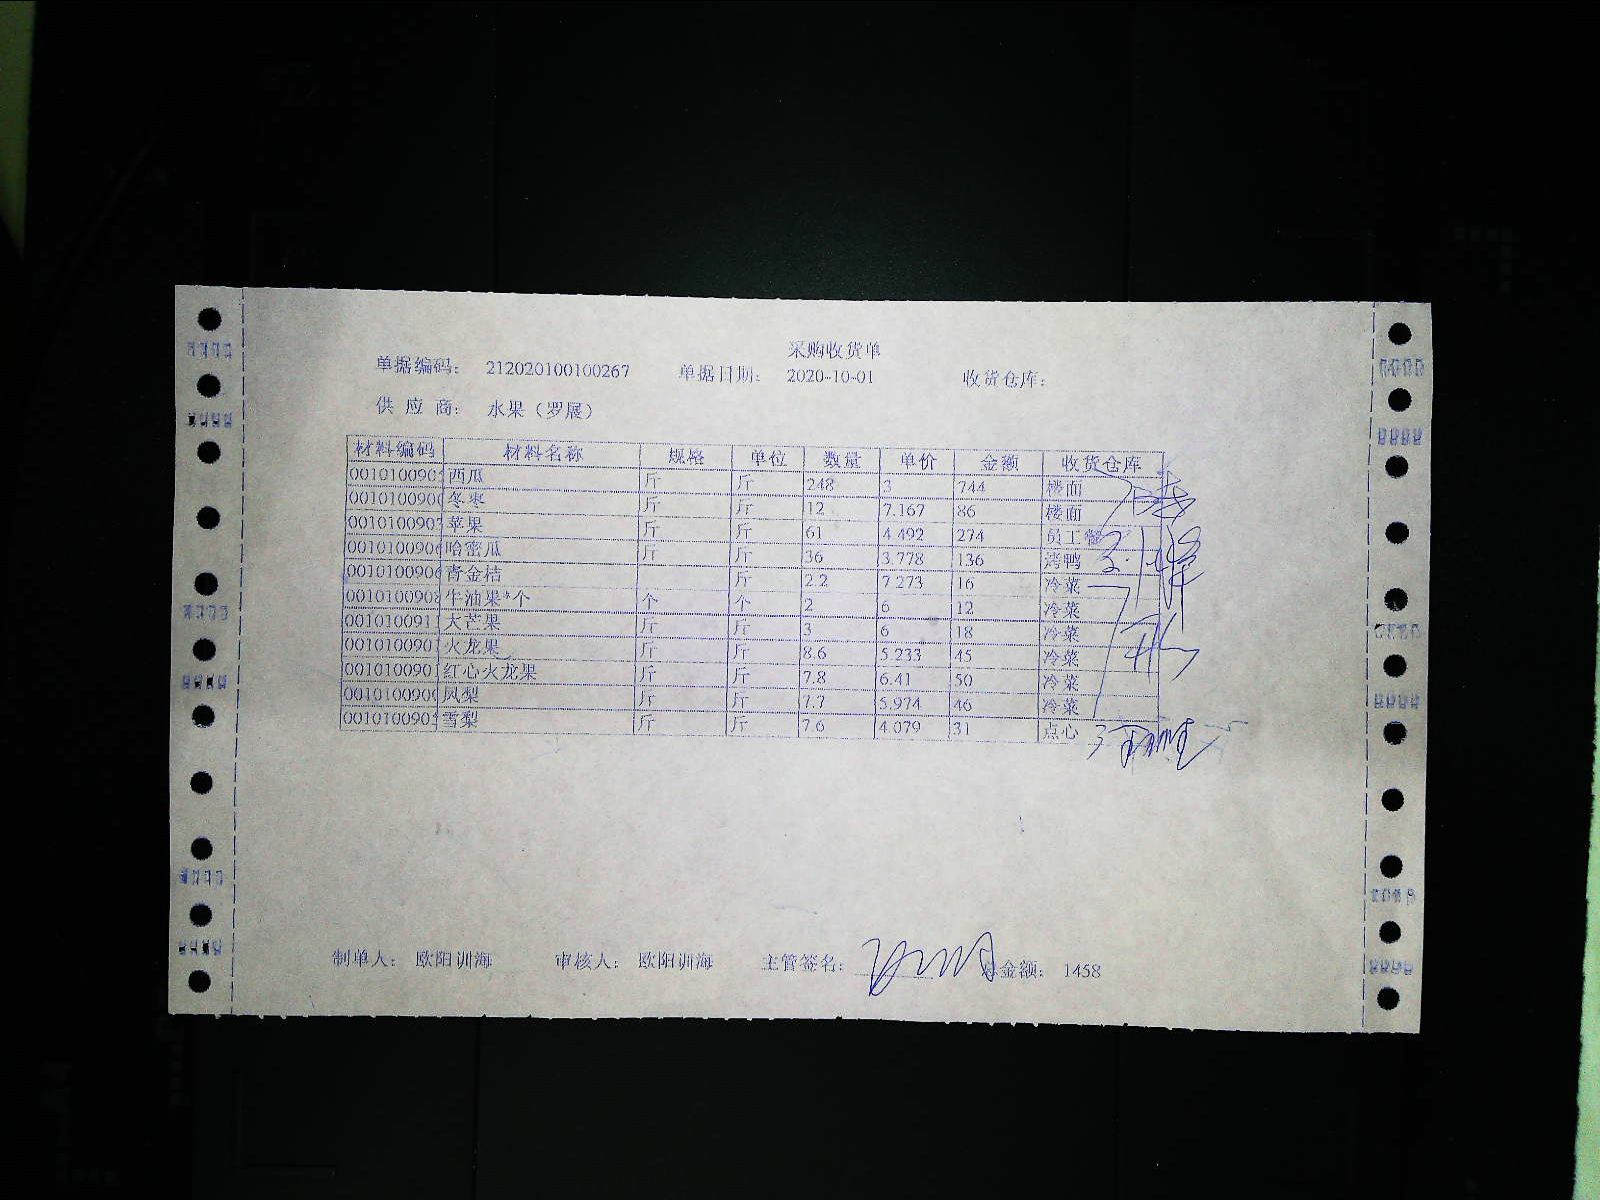 采购收货单
单据编码： 212020100100267 单据日期： 2020-10-01 收货仓库：
供 应 商： 水果（罗展）
材料编码 材料名称 规格 单位 数量 单价 金额 收货仓库
001010090 西瓜 斤 斤 248 3 744 楼面
001010090 冬枣 斤 斤 12 7.167 86 楼面
001010090 苹果 斤 斤 61 4.492 274 员工餐
001010090 哈密瓜 斤 斤 36 3.778 136 烤鸭
001010090 青金桔 斤 2.2 7.273 16 冷菜
001010090 牛油果*个 个 个 2 6 12 冷菜
001010091 大芒果 斤 斤 3 6 18 冷菜
001010090 火龙果 斤 斤 8.6 5.233 45 冷菜
001010090 红心火龙果 斤 斤 7.8 6.41 50 冷菜
001010090 凤梨 斤 斤 7.7 5.974 46 冷菜
001010090 雪梨 斤 斤 7.6 4.079 31 点心
制单人： 欧阳训海 审核人： 欧阳训海 主管签名： 总金额： 1458